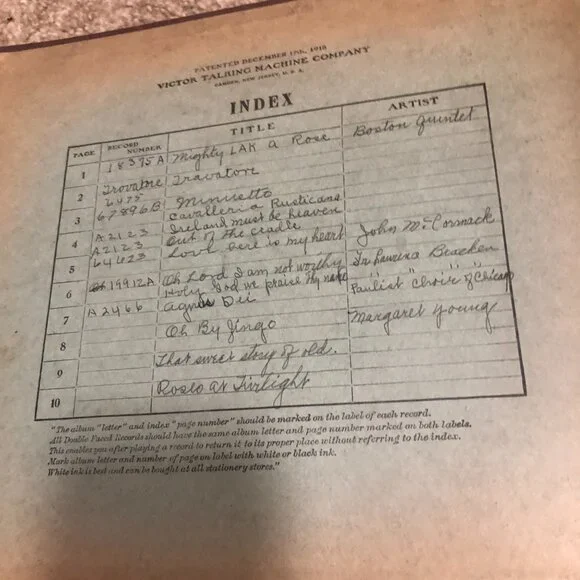 PATENTED DECEMBER 17th, 1918
VICTOR TALKING MACHINE COMPANY
CAMDEN, NEW JERSEY, U. S. A.
INDEX
PAGE RECORD NUMBER TITLE ARTIST
1 18375A Mighty LAK a Rose Boston Quintet
Trovatore Travatore
2 6475 Minuetto
67896B Cavalleria Rusticana
3 A2123 Ireland must be heaven
4 A2123 Out of the cradle
64623 Love here is my heart John McCormack
5
19912A Oh Lord I am not worthy Bracken
6 Holy God we praise thy name " " "
7 A2466 Agnus Dei Paulist Choir of Chicago
Oh By Jingo Margaret Young
8
That sweet story of old.
9
at Twilight
10
"The album "letter" and index "page number" should be marked on the label of each record.
All Double Faced Records should have the same album letter and page number marked on both labels.
This enables you after playing a record to return it to its proper place without referring to the index.
Mark album letter and number of page on label with white or black ink.
White ink is best and can be bought at all stationery stores."